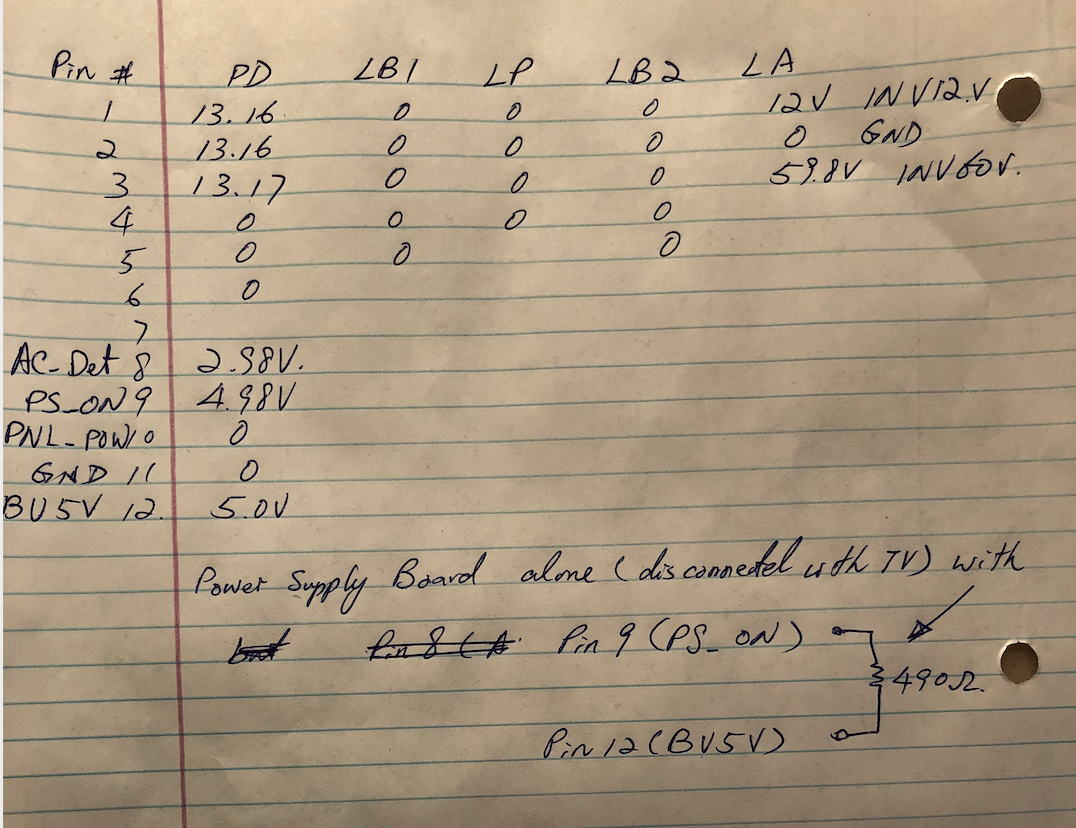 Pin # PD LB1 LP LB2 LA
1 13.16 0 0 0 12V INV12.V
2 13.16 0 0 0 0 GND
3 13.17 0 0 0 59.8V INV60V.
4 0 0 0 0
5 0 0 0
6 0
7
AC-Det 8 2.98V.
PS_ON 9 4.98V
PNL-POW10 0
GND 11 0
BU5V 12. 5.0V
Power Supply Board alone (disconnected with TV) with
but Pin 8 (A Pin 9 (PS_ON)
490Ω.
Pin 12 (BU5V)